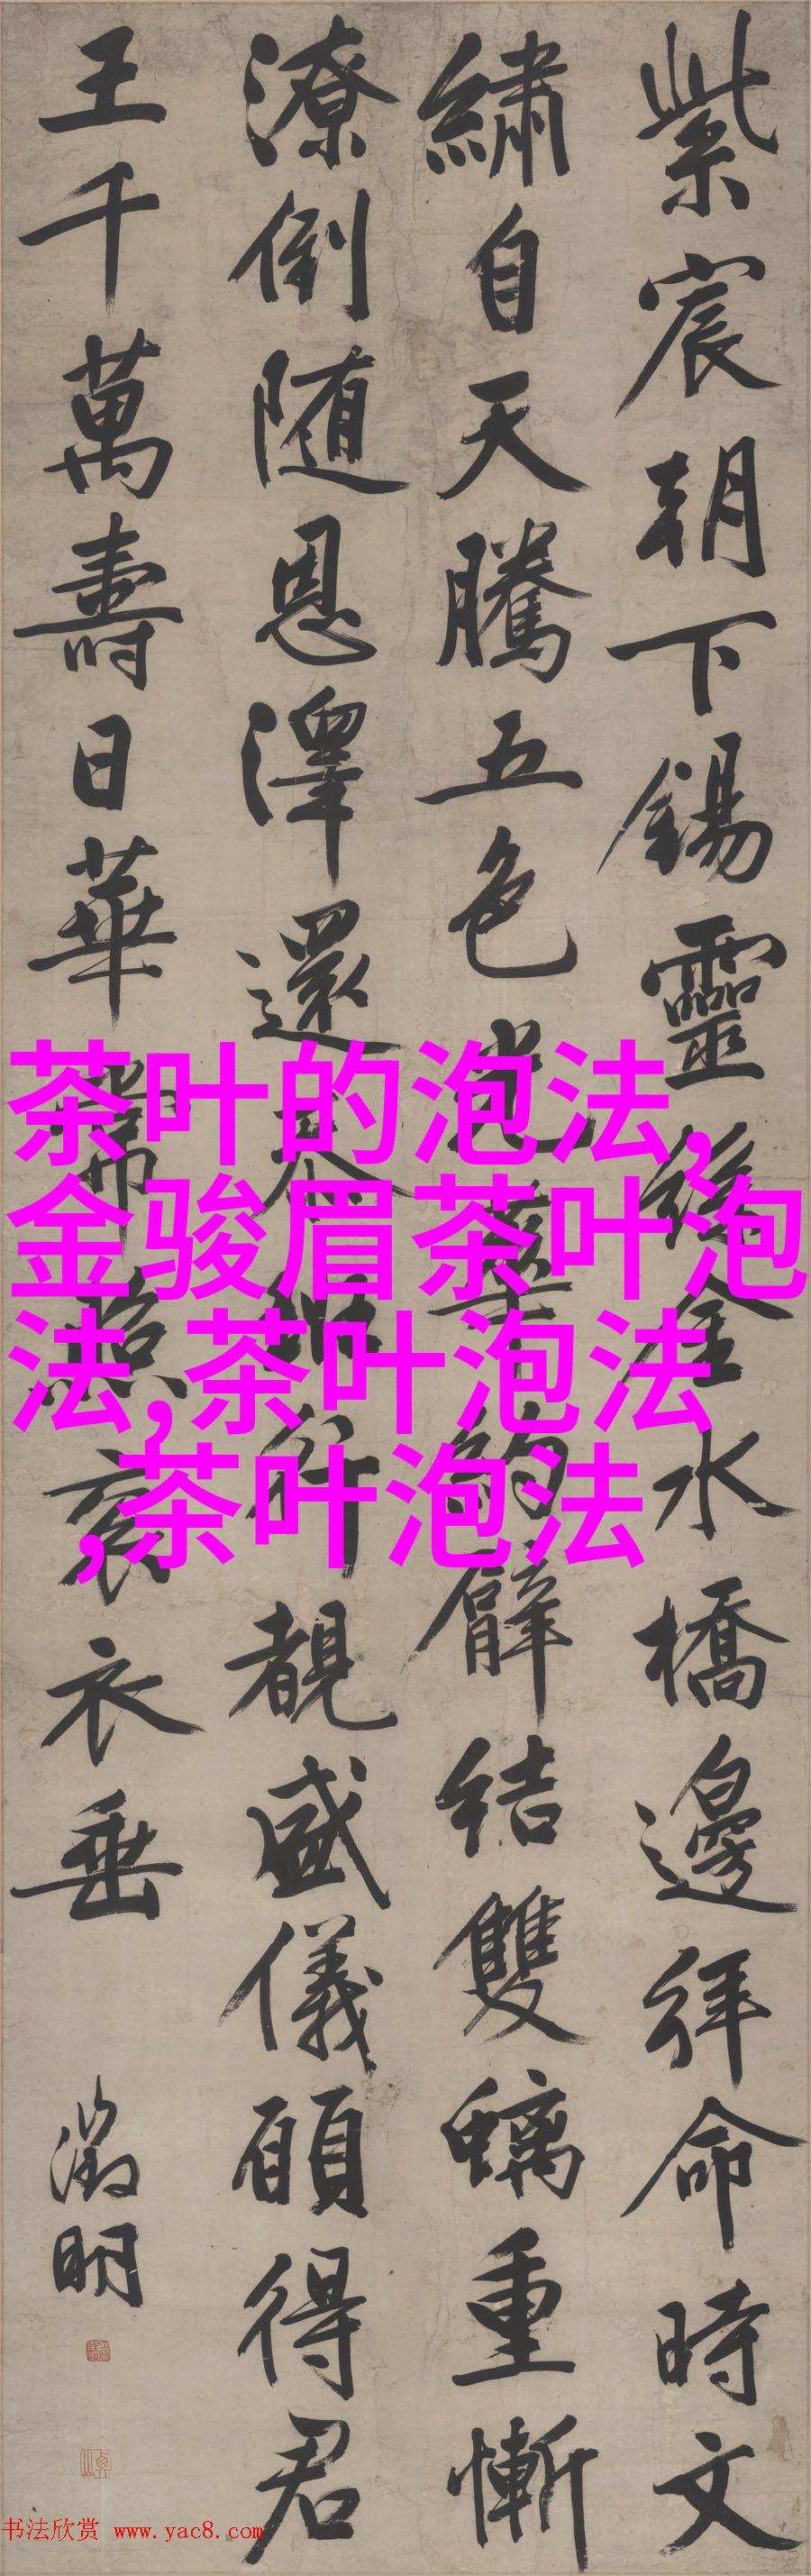 紫宸朝下錫靈絲金水橋邊拜命時文
繡自天騰五色光華約臂結雙螭重慚
潦倒随恩澤還行覩盛儀願得君
王千萬壽日華常照袞衣垂
徵明
茶叶的泡法,
金骏眉茶叶泡
法,茶叶泡法
,茶叶泡法
书法欣赏 www.yac8.com